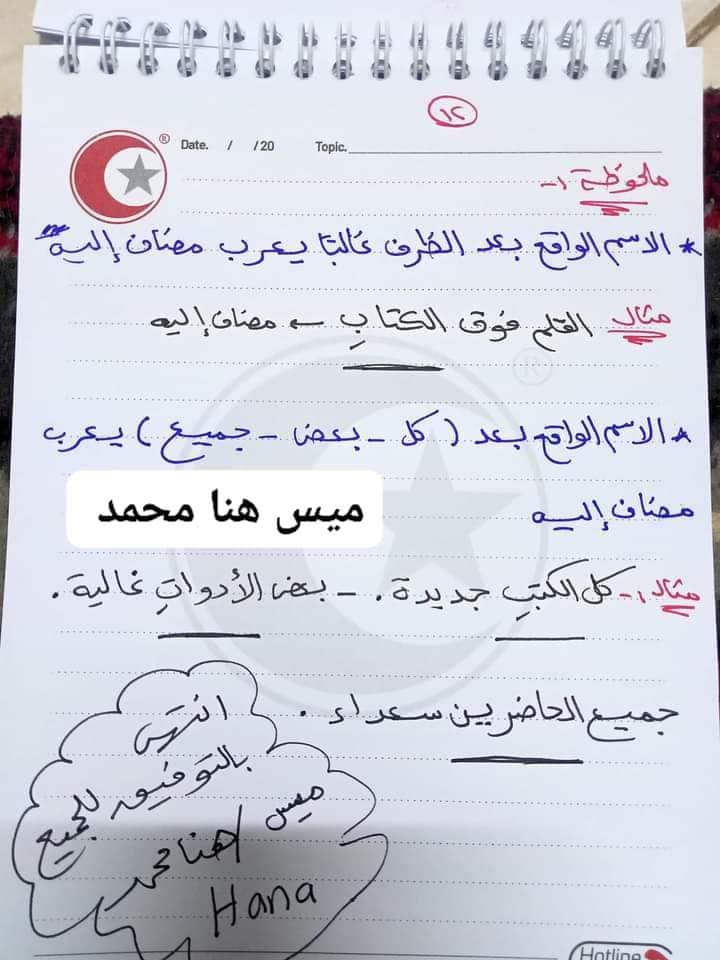 ١٢
Date. / /20 Topic.
ملحوظة :-
* الاسم الواقع بعد الظرف غالبًا يعرب مضاف إليه
مثال القلم فوق الكتابِ ← مضاف إليه
* الاسم الواقع بعد ( كل - بعض - جميع ) يعرب
مضاف إليه
ميس هنا محمد
مثال :- كل الكتبِ جديدة . - بعض الأدواتِ غالية .
جميع الحاضرين سعداء .
انتهى
بالتوفيق للجميع
ميس / هنا محمد
Hana
Hotline
®
®